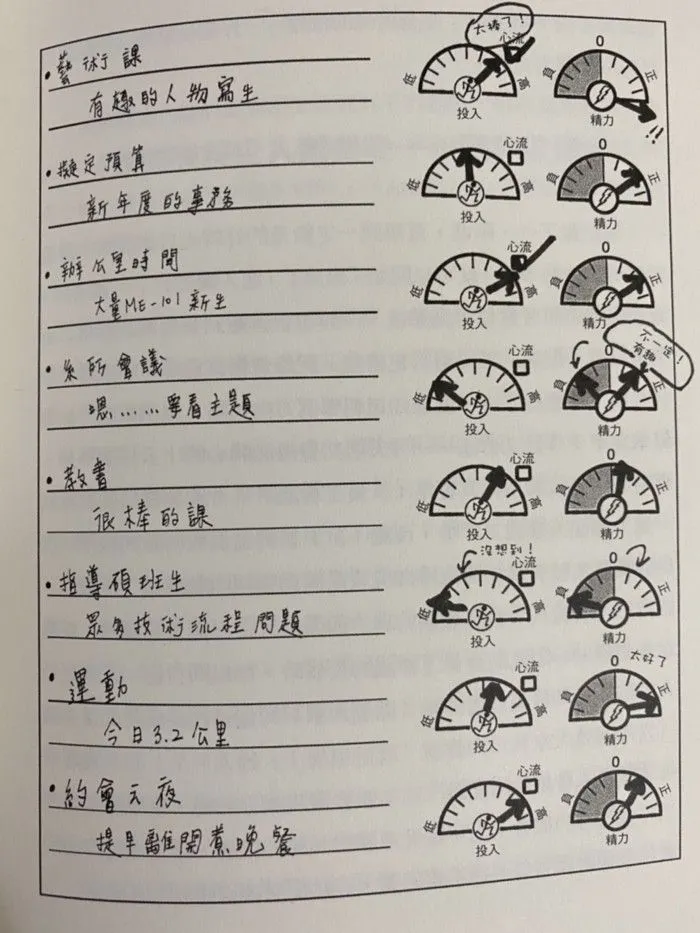 太棒了！
• 藝術課
有趣的人物寫生
心流
低 高
投入
0
負 正
精力
!!
• 擬定預算
新年度的事務
心流
低 高
投入
0
負 正
精力
• 辦公室時間
大量ME-101新生
心流
低 高
投入
0
負 正
精力
• 系所會議
嗯……要看主題
心流
低 高
投入
不一定！
有趣
0
負 正
精力
• 教書
很棒的課
心流
低 高
投入
0
負 正
精力
• 指導碩班生
眾多技術流程問題
沒想到！
心流
低 高
投入
0
負 正
精力
• 運動
今日3.2公里
心流
低 高
投入
太好了
0
負 正
精力
• 約會之夜
提早離開煮晚餐
心流
低 高
投入
0
負 正
精力